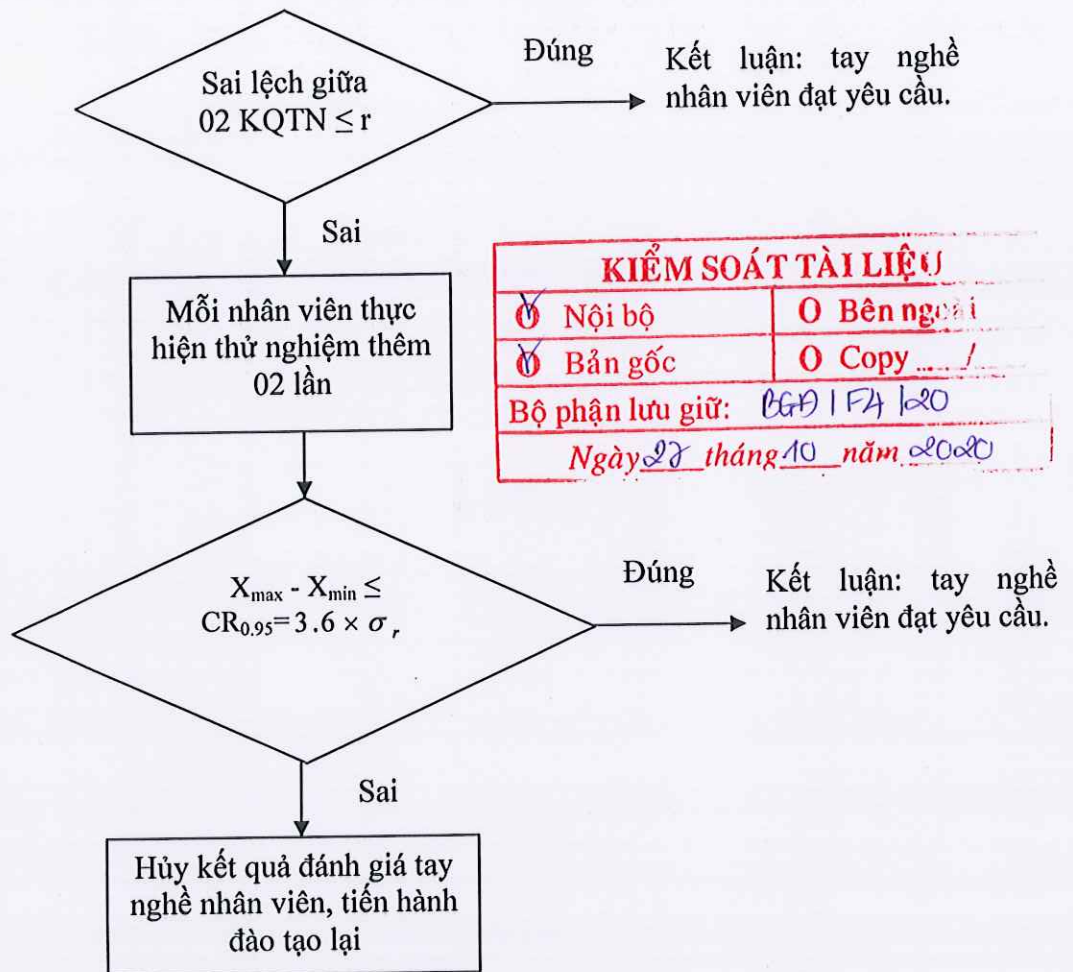 Sai lệch giữa
02 KQTN ≤ r
Đúng
Kết luận: tay nghề
nhân viên đạt yêu cầu.
Sai
Mỗi nhân viên thực
hiện thử nghiệm thêm
02 lần
KIỂM SOÁT TÀI LIỆU
O Nội bộ
O Bên ngoài
O Bản gốc
O Copy ..... /
Bộ phận lưu giữ: BGĐ | F4 | 20
Ngày 27 tháng 10 năm 2020
Xmax - Xmin ≤
CR0.95=3.6 × σ r
Đúng
Kết luận: tay nghề
nhân viên đạt yêu cầu.
Sai
Hủy kết quả đánh giá tay
nghề nhân viên, tiến hành
đào tạo lại